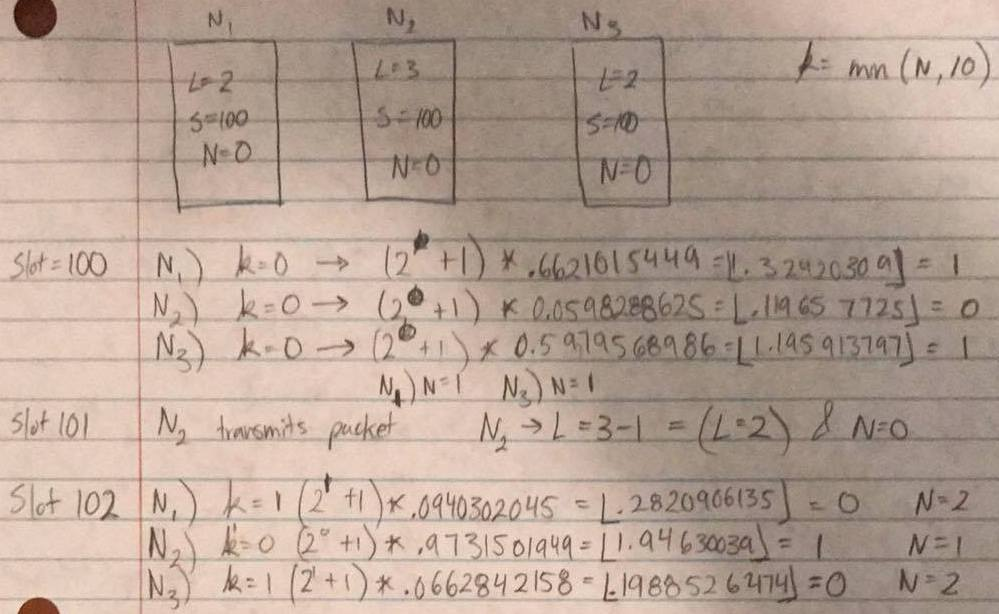 N₁ N₂ N₃
L=2 L=3 L=2 k= min (N, 10)
S=100 S=100 S=100
N=0 N=0 N=0
Slot=100 N₁) k=0 → (2⁰ +1) * .6621015449 = ⌊1.32420309⌋ = 1
N₂) k=0 → (2⁰ +1) * 0.0598288625 = ⌊.1196577725⌋ = 0
N₃) k=0 → (2⁰ +1) * 0.5979568986 = ⌊1.195913797⌋ = 1
N₁) N=1 N₃) N=1
Slot 101 N₂ transmits packet N₂ → L = 3-1 = (L=2) & N=0
Slot 102 N₁) k=1 (2¹ +1) * .0940302045 = ⌊.2820906135⌋ = 0 N=2
N₂) k=0 (2⁰ +1) * .9731501949 = ⌊1.94630039⌋ = 1 N=1
N₃) k=1 (2¹ +1) * .0662842158 = ⌊.1988526474⌋ = 0 N=2